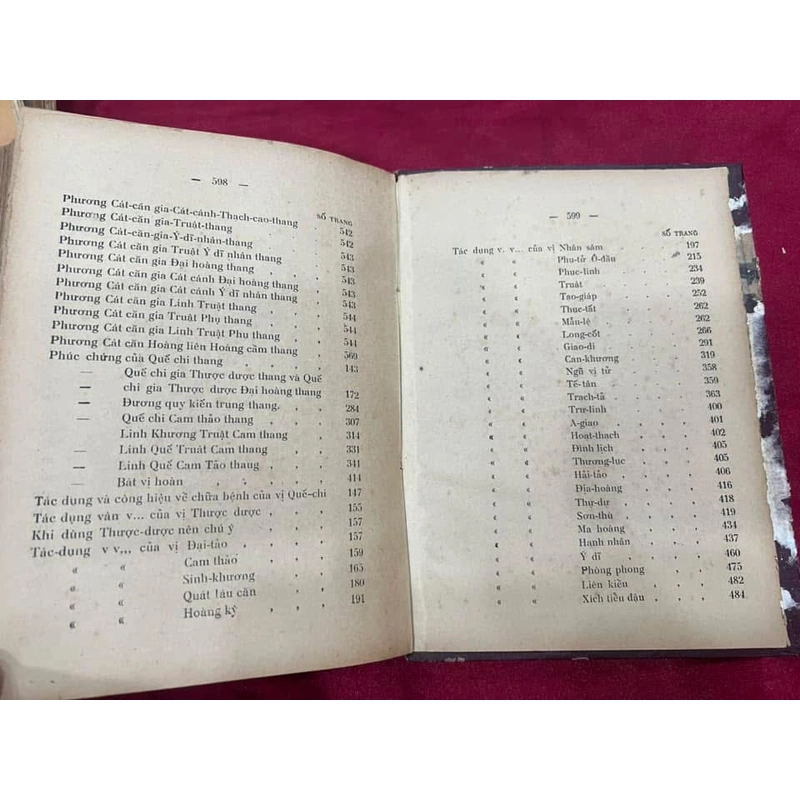 — 598 —
SỐ TRANG
Phương Cát-căn gia-Cát-cánh-Thạch-cao-thang 542
Phương Cát-căn gia-Truật-thang . . 542
Phương Cát-căn-gia-Ý-dĩ-nhân-thang . 543
Phương Cát căn gia Truật Ý dĩ nhân thang . 543
Phương Cát căn gia Đại hoàng thang . . 543
Phương Cát căn gia Cát cánh Đại hoàng thang . 543
Phương Cát căn gia Cát cánh Ý dĩ nhân thang . 543
Phương Cát căn gia Linh Truật thang . . 544
Phương Cát căn gia Truật Phụ thang . . 544
Phương Cát căn gia Linh Truật Phụ thang . . 544
Phương Cát căn Hoàng liên Hoàng cầm thang . 569
Phúc chứng của Quế chi thang . . . . 143
— Quế chi gia Thược dược thang và Quế
— chi gia Thược dược Đại hoàng thang 172
— Đương quy kiến trung thang. . . 284
— Quế chi Cam thảo thang . . . 307
Linh Khương Truật Cam thang . . 314
— Linh Quế Truật Cam thang . . 331
— Linh Quế Cam Tảo thang . . . 341
— Bát vị hoàn . . . . 414
Tác dụng và công hiệu về chữa bệnh của vị Quế-chi 147
Tác dụng vân v... của vị Thược dược . . . 155
Khi dùng Thược-dược nên chú ý . . . 157
Tác-dụng v v... của vị Đại-táo . . . . 157
« « Cam thảo . . . . 159
« « Sinh-khương . . . 165
« « Quát lâu căn . . . 180
« « Hoàng kỳ . . . 191
— 599 —
SỐ TRANG
Tác dụng v. v... của vị Nhân sâm . . . . 197
« « Phụ-tử Ô-đầu . . . 215
« « Phục-linh . . . . 234
« « Truật . . . . 239
« « Tạo-giáp . . . . 252
« « Thục-tất . . . . 262
« « Mẫu-lệ . . . . 262
« « Long-cốt . . . . 266
« « Giao-di . . . . 291
« « Can-khương . . . . 319
« « Ngũ vị tử . . . . 358
« « Tế-tân . . . . 359
« « Trạch-tả . . . . 363
« « Trư-linh . . . . 400
« « A-giao . . . . 401
« « Hoạt-thạch . . . . 402
« « Đình lịch . . . . 405
« « Thương-lục . . . . 405
« « Hải-tảo . . . . 406
« « Địa-hoàng . . . . 416
« « Thự-dự . . . . 418
« « Sơn-thù . . . . 419
« « Ma hoàng . . . . 434
« « Hạnh nhân . . . . 437
« « Ý dĩ . . . . 460
« « Phòng phong . . . . 475
« « Liên kiều . . . . 482
« « Xích tiểu đậu . . . . 484